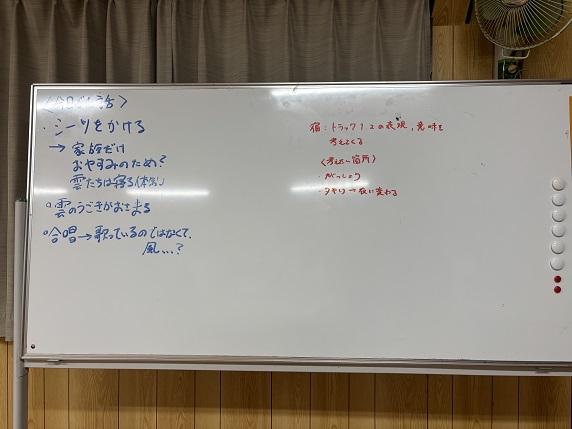 〈今日の話〉
・シーツをかける
→ 家族だけ
おやすみのため?
雲たちは寝る
○雲のうごきがおさまる
○合唱→歌っているのではなくて、
風...?
宿:トラック1,2の表現,意味を
考えてくる
〈考えたい箇所〉
・がっしょう
・夕やけ→夜に変わる